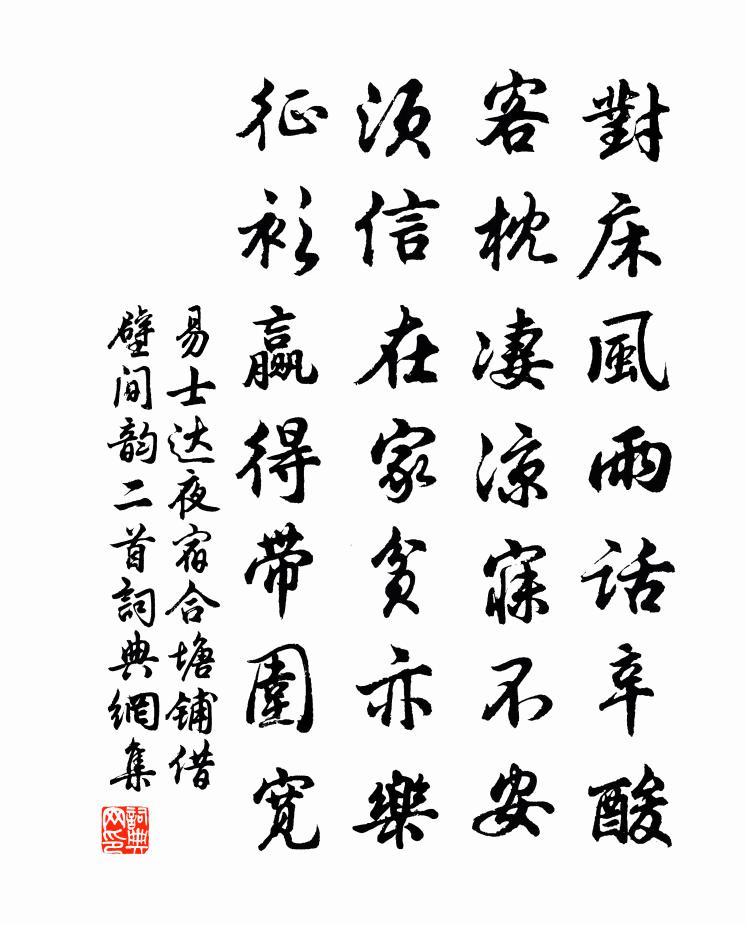 對床風雨話辛酸
客枕凄涼寐不安
須信在家貧亦樂
征衫贏得帶圍寬
易士达夜宿合塘铺借
壁间韵二首詞典網集
詞典网印